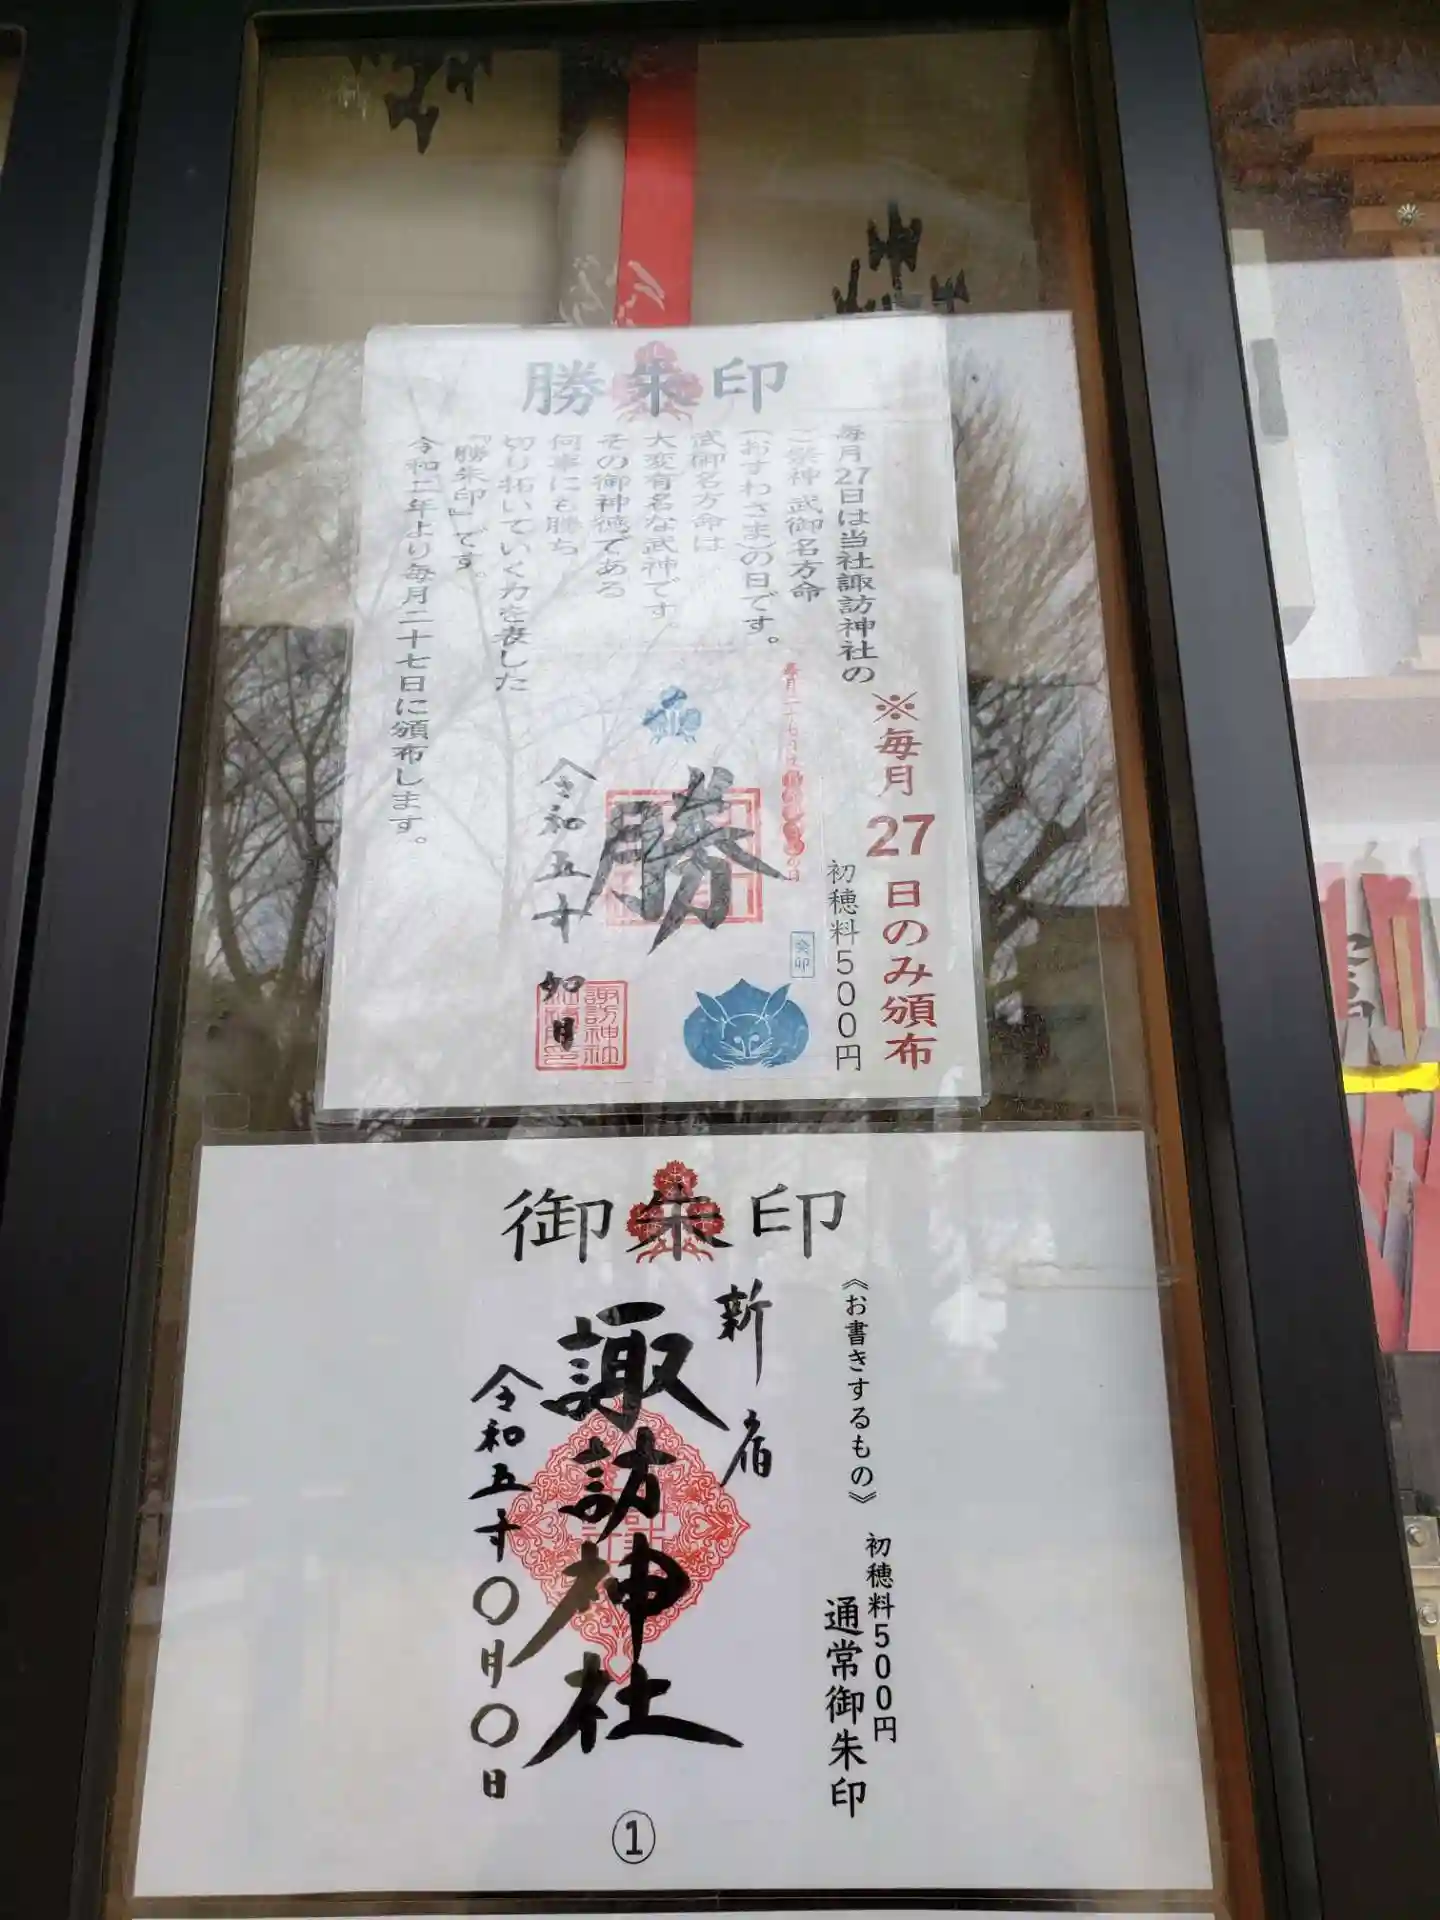 勝朱印
毎月27日は当社諏訪神社の
ご祭神 武御名方命
(おすわさま)の日です。
武御名方命は
大変有名な武神です。
その御神徳である
何事にも勝ち
切り拓いていく力を表した
『勝朱印』です。
令和二年より毎月二十七日に頒布します。
※毎月27日のみ頒布
初穂料500円
勝
令和五年
癸卯
諏訪神社
御朱印
《お書きするもの》
初穂料500円
通常御朱印
新宿
諏訪神社
令和五年〇月〇日
①